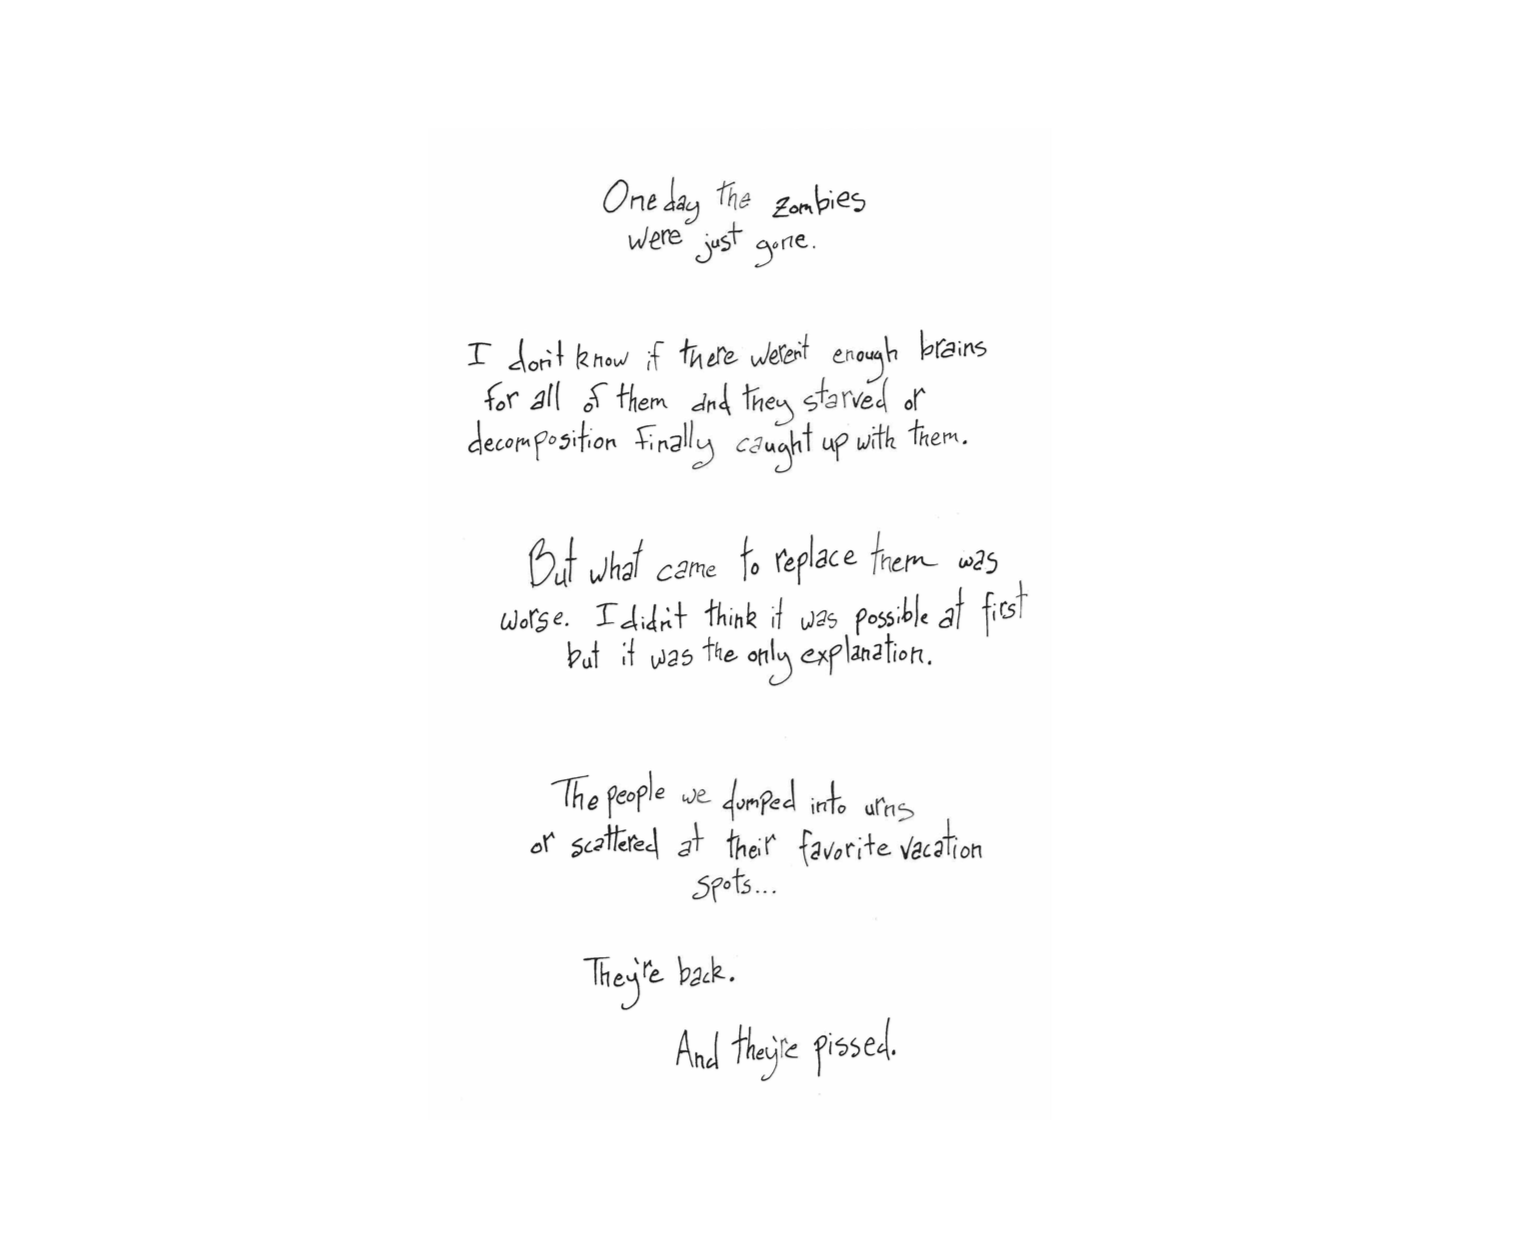 One day the zombies
were just gone.
I don't know if there weren't enough brains
for all of them and they starved or
decomposition finally caught up with them.
But what came to replace them was
worse. I didn't think it was possible at first
but it was the only explanation.
The people we dumped into urns
or scattered at their favorite vacation
spots...
They're back.
And they're pissed.